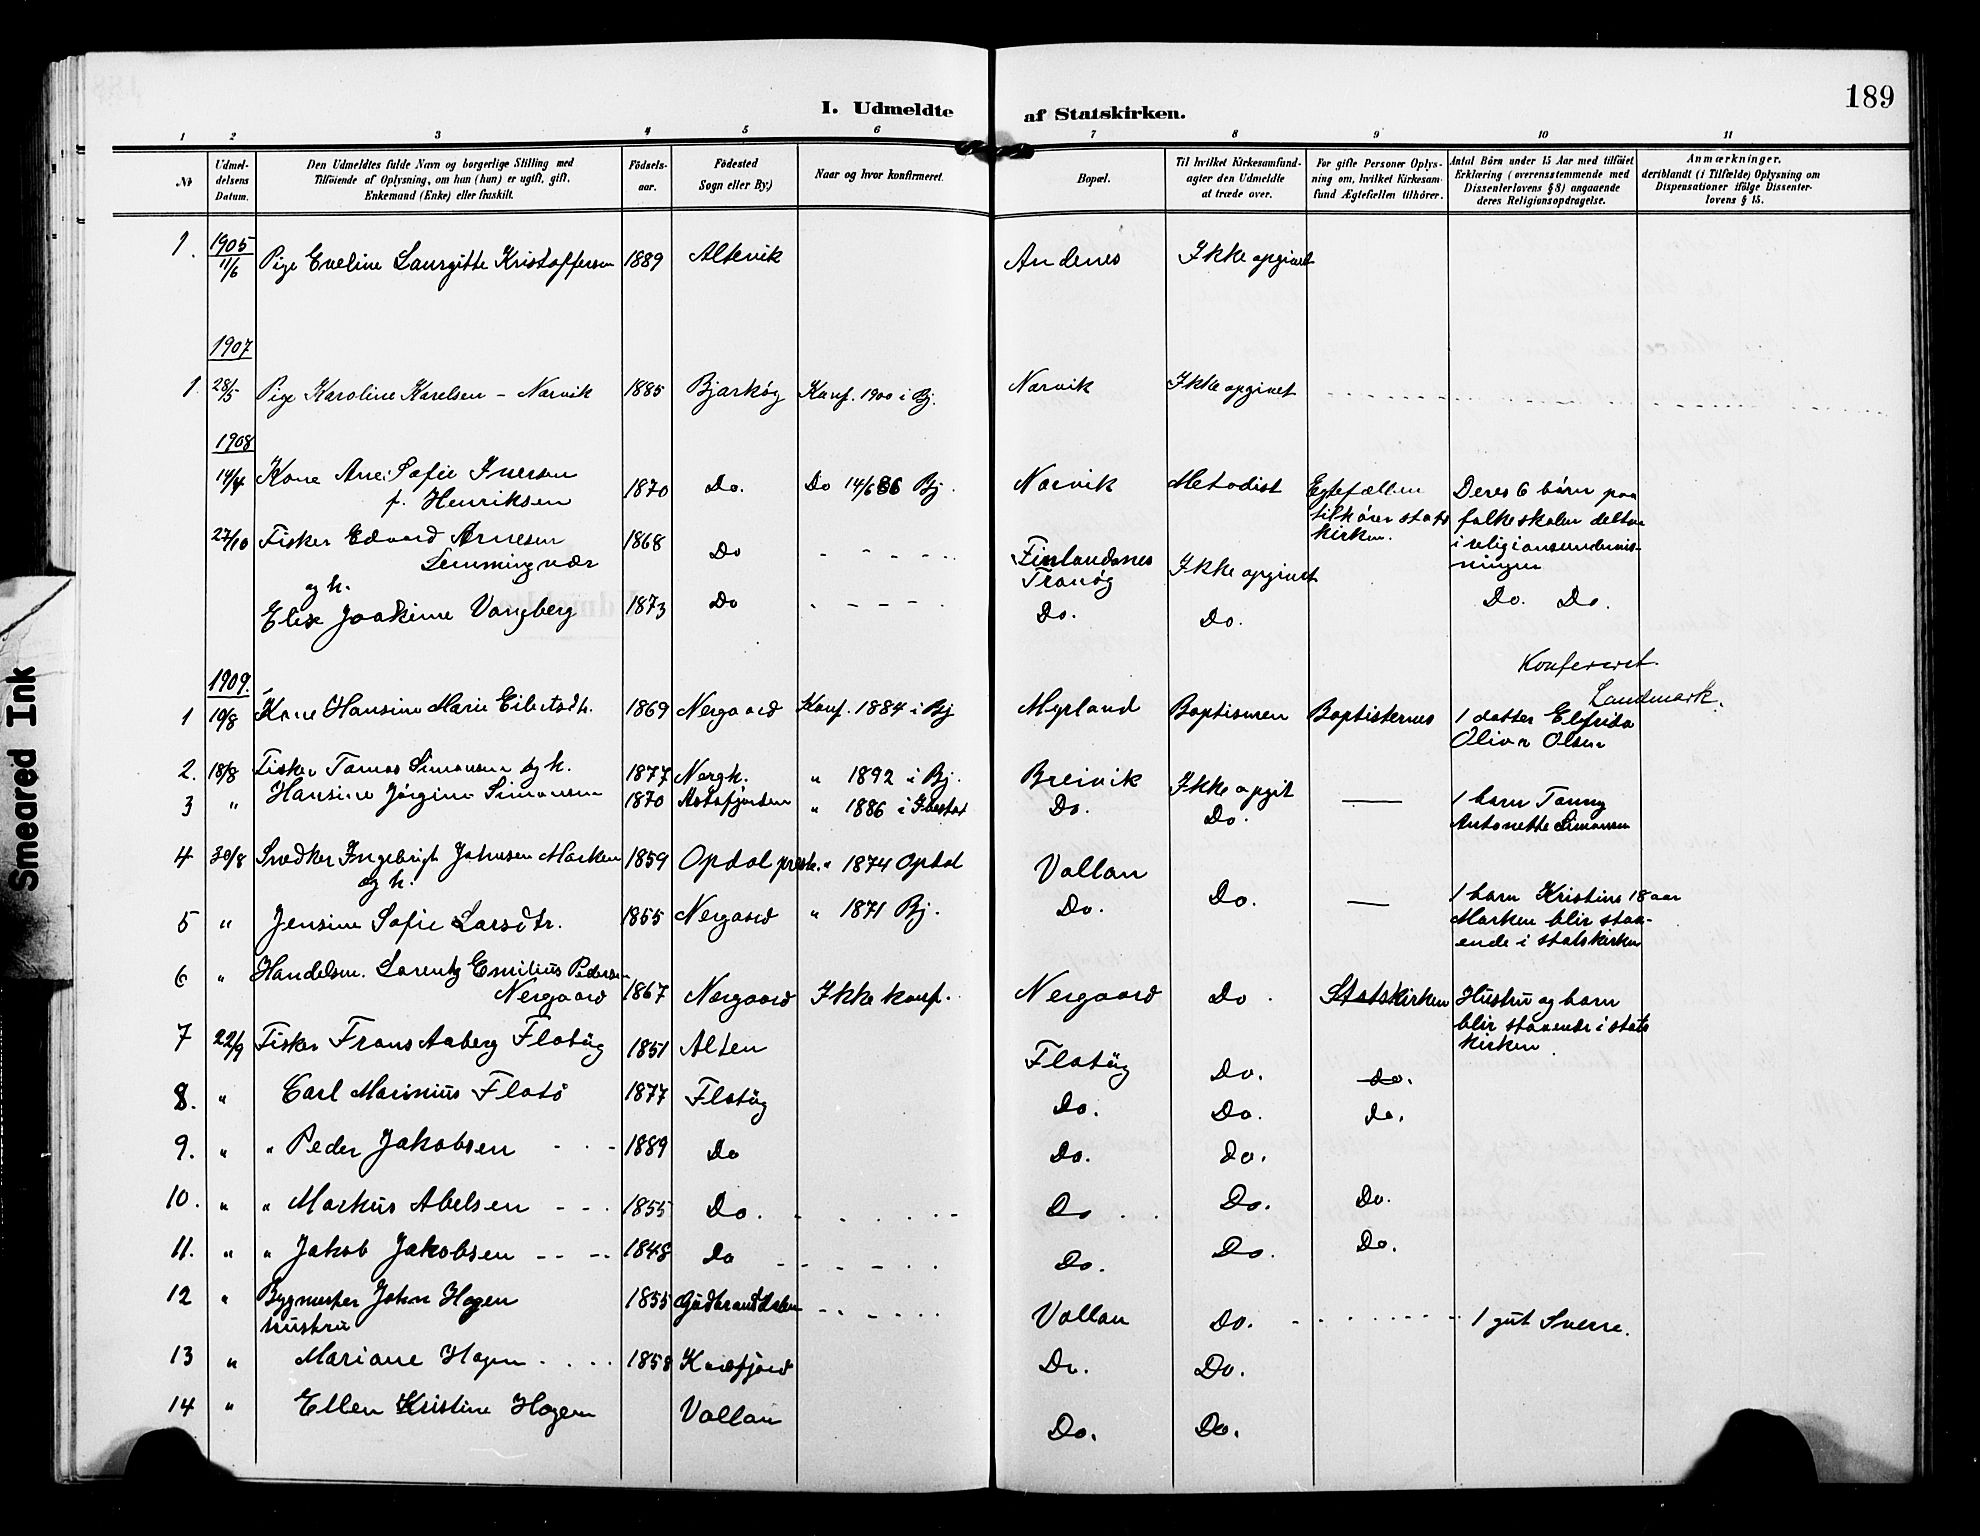 189
I. Udmeldte af Statskirken.
1 2 3 4 5 6 7 8 9 10 11
Nr
Udmel-
delsens
Datum.
Den Udmeldtes fulde Navn og borgerlige Stilling med
Tilföiende af Oplysning, om han (hun) er ugift, gift,
Enkemand (Enke) eller fraskilt.
Födsels-
aar.
Födested
Sogn eller By.)
Naar og hvor konfirmeret.
Bopæl.
Til hvilket Kirkesamfund-
agter den Udmeldte
at træde over.
For gifte Personer Oplys-
ning om, hvilket Kirkesam-
fund Ægtefællen tilhörer.
Antal Börn under 15 Aar med tilföiet
Erklæring (overensstemmende med
Dissenterlovens § 8) angaaende
deres Religionsopdragelse.
Anmærkninger.
deriblandt (i Tilfælde) Oplysning om
Dispensationer ifölge Dissenter-
lovens § 15.
1. 1905
11/6 Pige Eveline Laurgitte Kristoffersen 1889 Altevik Andenes Ikke opgivet
1907
1. 28/5 Pige Karoline Karelsen - Narvik 1885 Bjarköy Konf. 1900 i Bj. Narvik Ikke opgivet
1908
14/4 Kone Ane Sofie Iversen
f. Henriksen 1870 Do. Do 14/6 86 Bj. Narvik Metodist Egtefællen
tilhörer stats
kirken.
Deres 6 börn paa
folkeskolen deltar
i religionsundervis-
ningen
27/10 Fisker Edvard Arnesen
Lemmingvær 1868 Do Finlandsnes
Tranöy Ikke opgivet
og h.
Elise Joakime Vangberg 1873 Do Do. Do. Do. Do.
Konfereret.
Landmark.
1909.
1 10/8 Kone Hansine Marie Eilertsdtr. 1869 Nergaard Konf. 1884 i Bj Myrland Baptismen Baptisternes 1 datter Elfrida
Oliva Olsen
2. 18/8 Fisker Tomas Simonsen og h. 1877 Nergh. " 1892 i Bj. Breivik Ikke opgit
3 " Hansine Jörgine Simonsen 1870 Astafjorden " 1886 i Ibestad Do. Do. — 1 barn Tanny
Antonette Simonsen
4 30/8 Snedker Ingebrigt Johnsen Marken 1859 Opdal prestk. " 1874 Opdal Vollan
og h.
5 " Jensine Sofie Larsdtr. 1855 Nergaard " 1871 Bj. Do. Do. — 1 barn Kristine 18 aar
Marken blir staa-
ende i statskirken
6 " Handelsm. Lorentz Emilius Pedersen
Nergaard 1867 Nergaard Ikke konf. Nergaard Do. Statskirken Hustru og barn
blir staaende i stats
kirken.
7 22/9 Fisker Frans Aaberg Flatöy 1851 Alten Flatöy Do. do.
8. " Carl Marinius Flatö 1877 Flatöy Do. Do. do.
9. " " Peder Jakobsen 1889 Do Do. do.
10. " " Markus Abelsen 1855 Do. Do Do. Do.
11. " " Jakob Jakobsen 1848 Do Do. Do. Do.
12 " Bygmester John Hagen 1855 Gudbrandsdalen Vollan Do. 1 gut Sverre.
hustru
13 " Mariane Hagen 1858 Kvæfjord Do. Do.
14 " Ellen Kristine Hagen Vollan Do. Do.
Smeared Ink